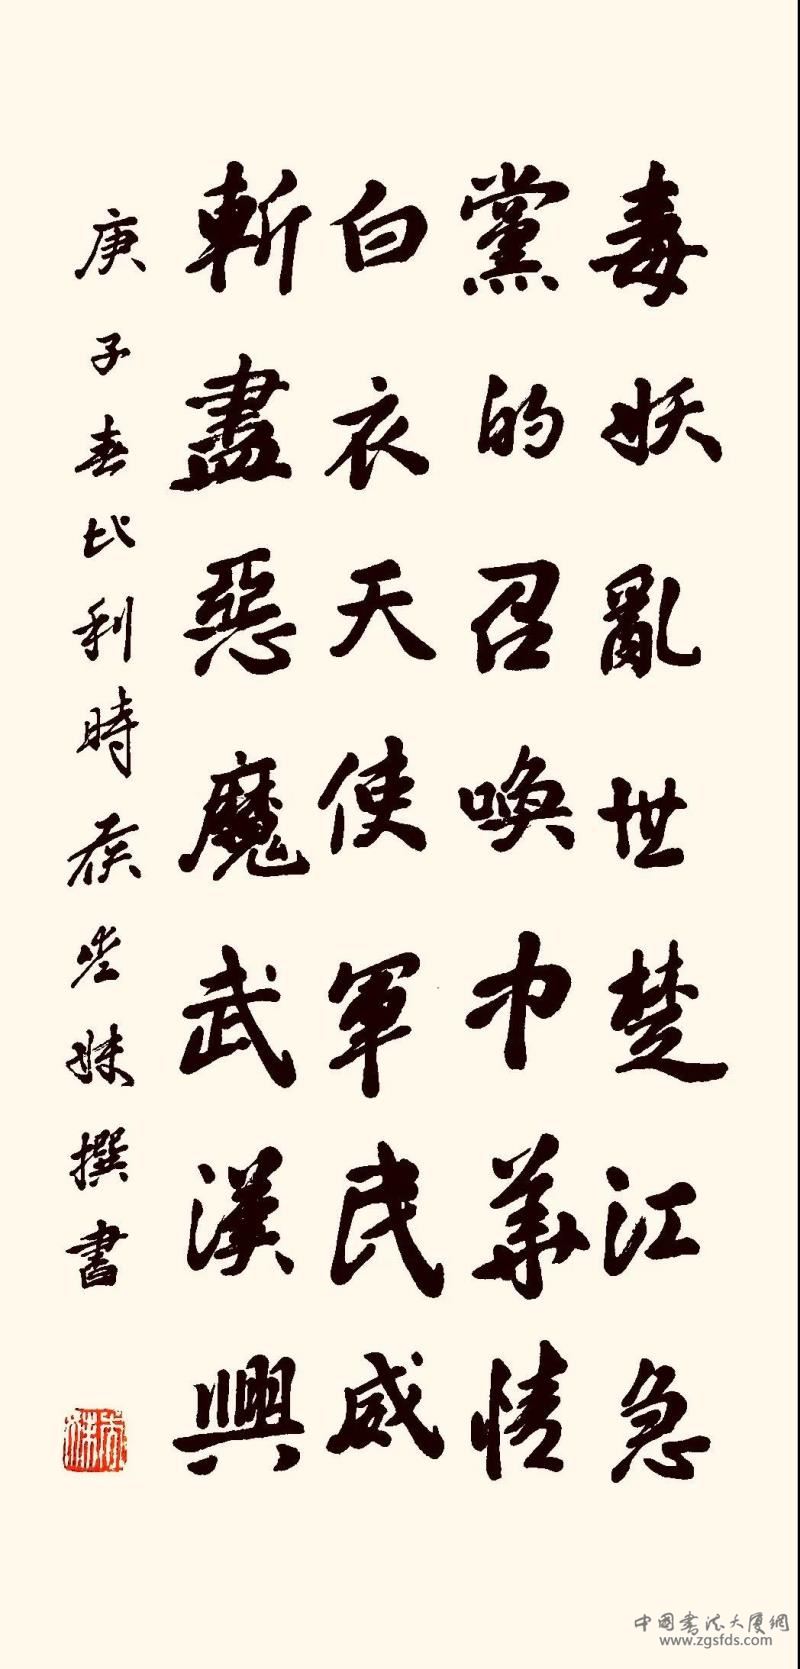 毒妖亂世楚江急
黨的召喚中華情
白衣天使軍民威
斬盡惡魔武漢興
庚子春比利時侯妹撰書
中國書法大廈網
www.zgsfds.com